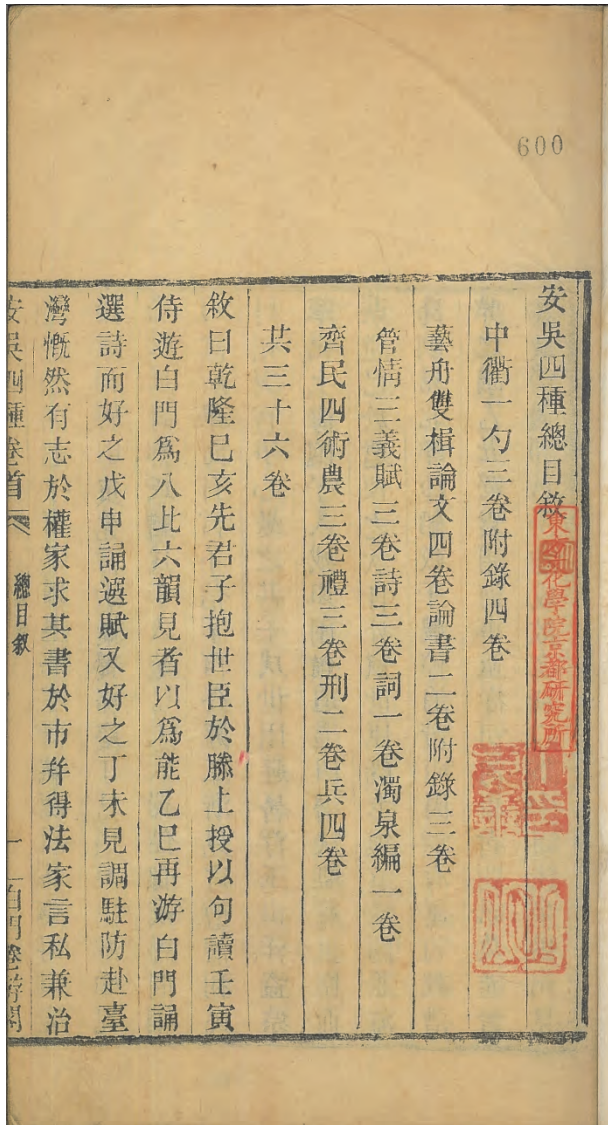 600
安吳四種總目敘
中衢一勺三卷附錄四卷
藝舟雙楫論文四卷論書二卷附錄三卷
管情三義賦三卷詩三卷詞一卷濁泉編一卷
齊民四術農三卷禮三卷刑二卷兵四卷
共三十六卷
敘曰乾隆己亥先君子抱世臣於膝上授以句讀壬寅
侍遊白門為八比六韻見者以為能乙巳再游白門誦
選詩而好之戊申誦選賦又好之丁未見調駐防赴臺
灣慨然有志於權家求其書於市并得法家言私兼治
安吳四種卷首 總目敘 一 白門倦游閣
東方文化學院京都研究所